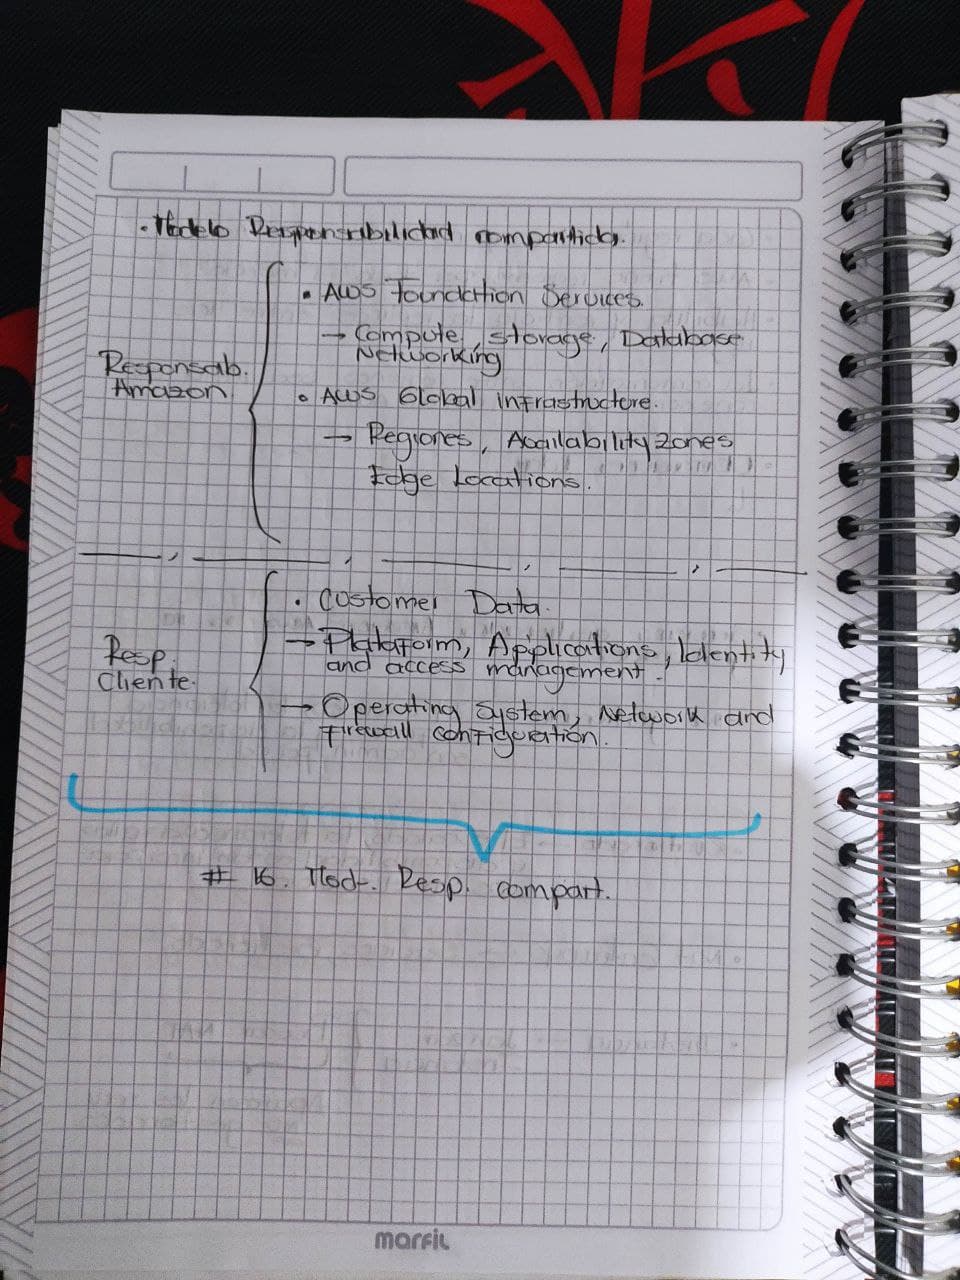 • Modelo Responsabilidad compartida.
Responsab.
Amazon
• AWS Foundation Services.
→ Compute, storage, Database
Networking
• AWS Global infrastructure.
→ Regiones, Availability zones
Edge Locations.
Resp
Cliente.
• Customer Data.
→ Plataform, Applications, Identity
and access management.
→ Operating System, Network and
firewall configuration.
# 16. Mod. Resp. compart.
marfil